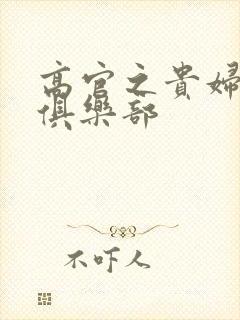 高官之貴婦
俱樂部
不吓人